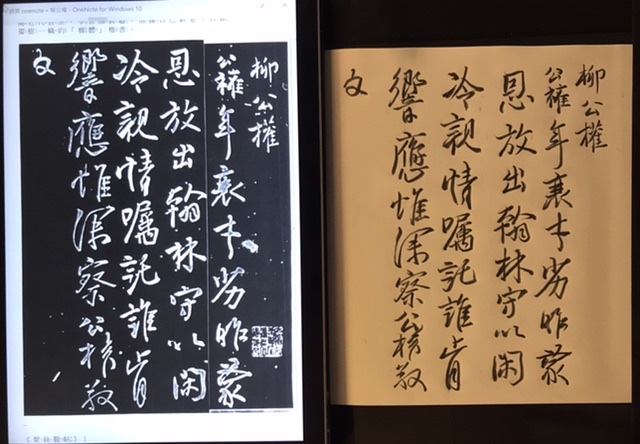 OneNote for Windows 10
柳公權
公權年衰才劣昨蒙
恩放出翰林守以閑
冷親情囑託誰肯
響應惟深察公權敬
柳公權
公權年衰才劣昨蒙
恩放出翰林守以閑
冷親情囑託誰肯
響應惟深察公權敬